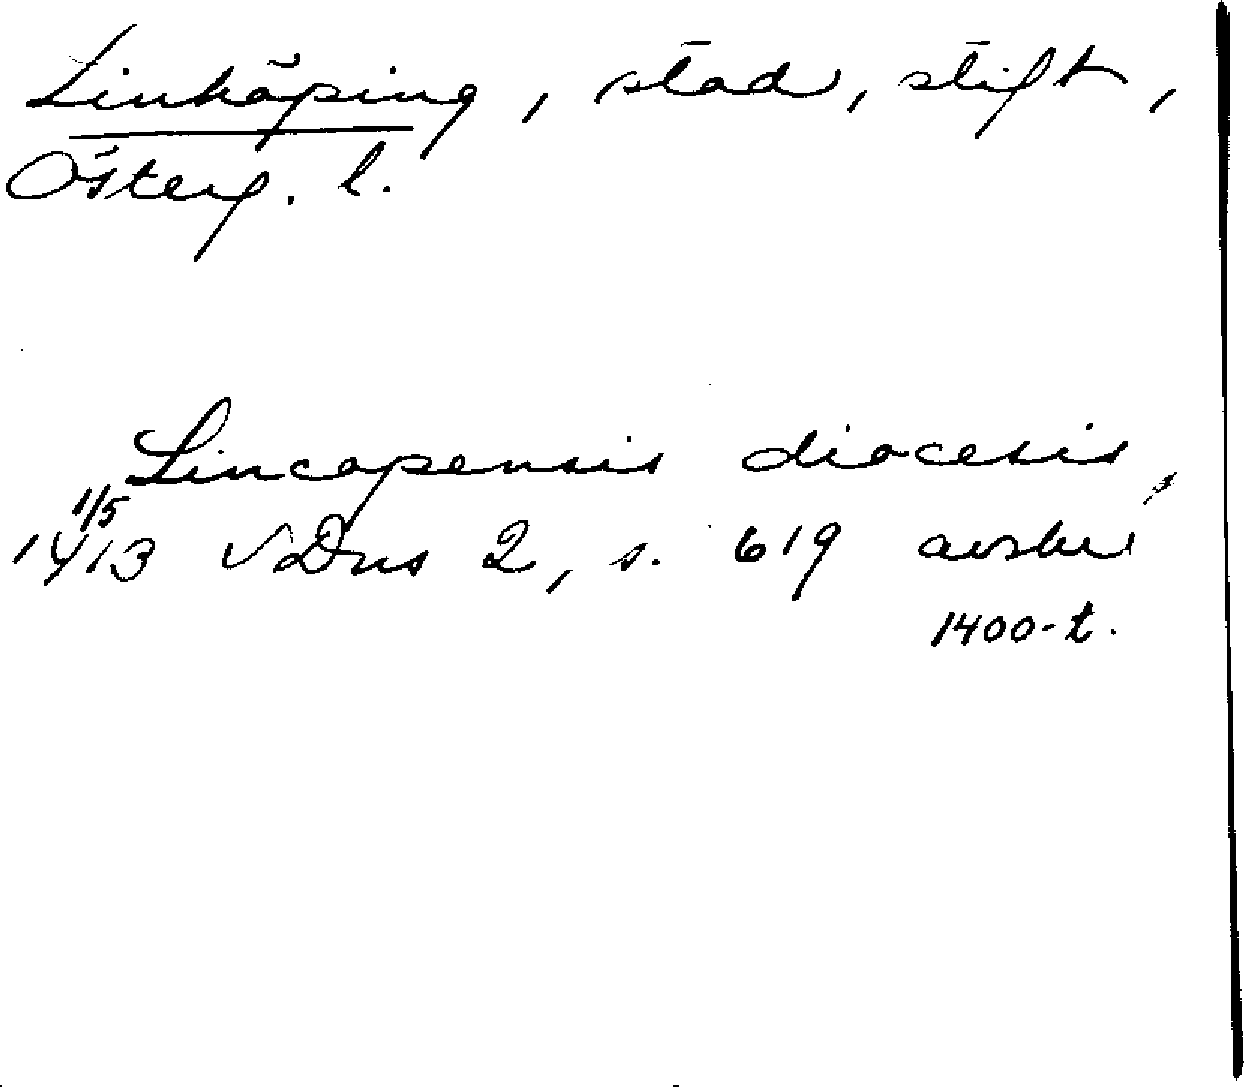 Linköping, stad, stift,
Österg. l.
Lincopensis diocesis,
1/5
1413 SDns 2, s. 619 avskr
1400-t.